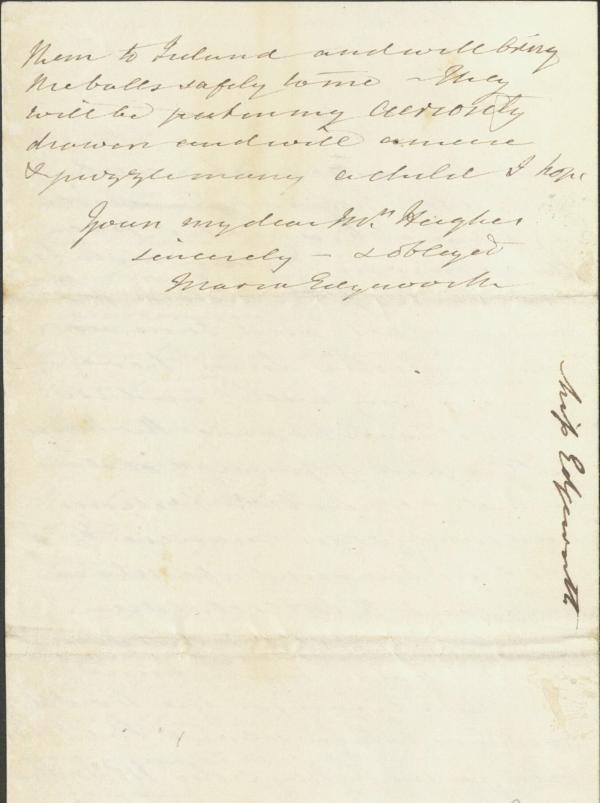 them to Ireland and will bring
the balls safely to me – They
will be put in my curiosity
drawer and will amuse
& puzzle many a child I hope
Yours my dear Mrs Hughes
sincerely – & obliged
Maria Edgeworth
Miss Edgeworth